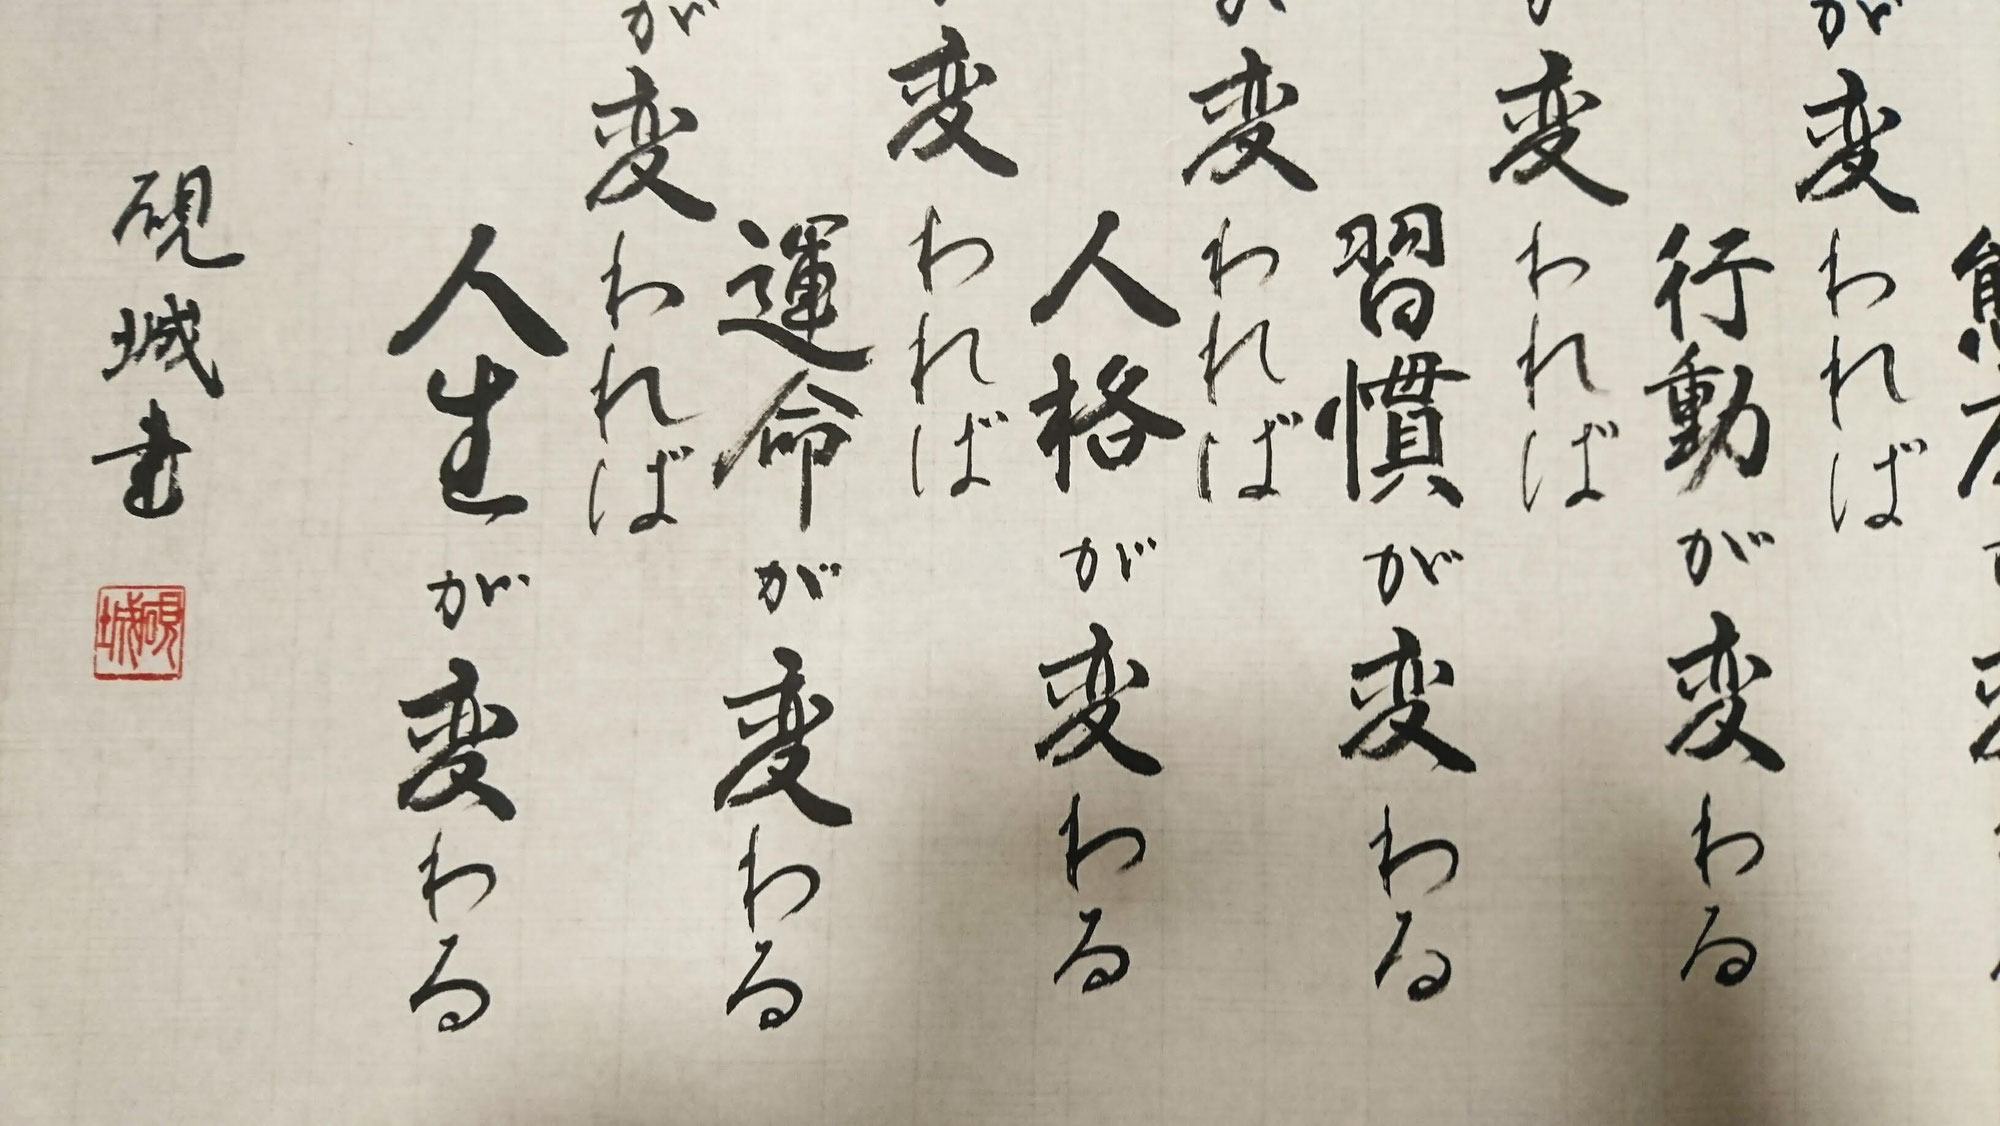 態度
変
が変われば
行動が変わる
変われば
習慣が変わる
変われば
人格が変わる
変われば
運命が変わる
が変われば
人生が変わる
硯城書
硯城